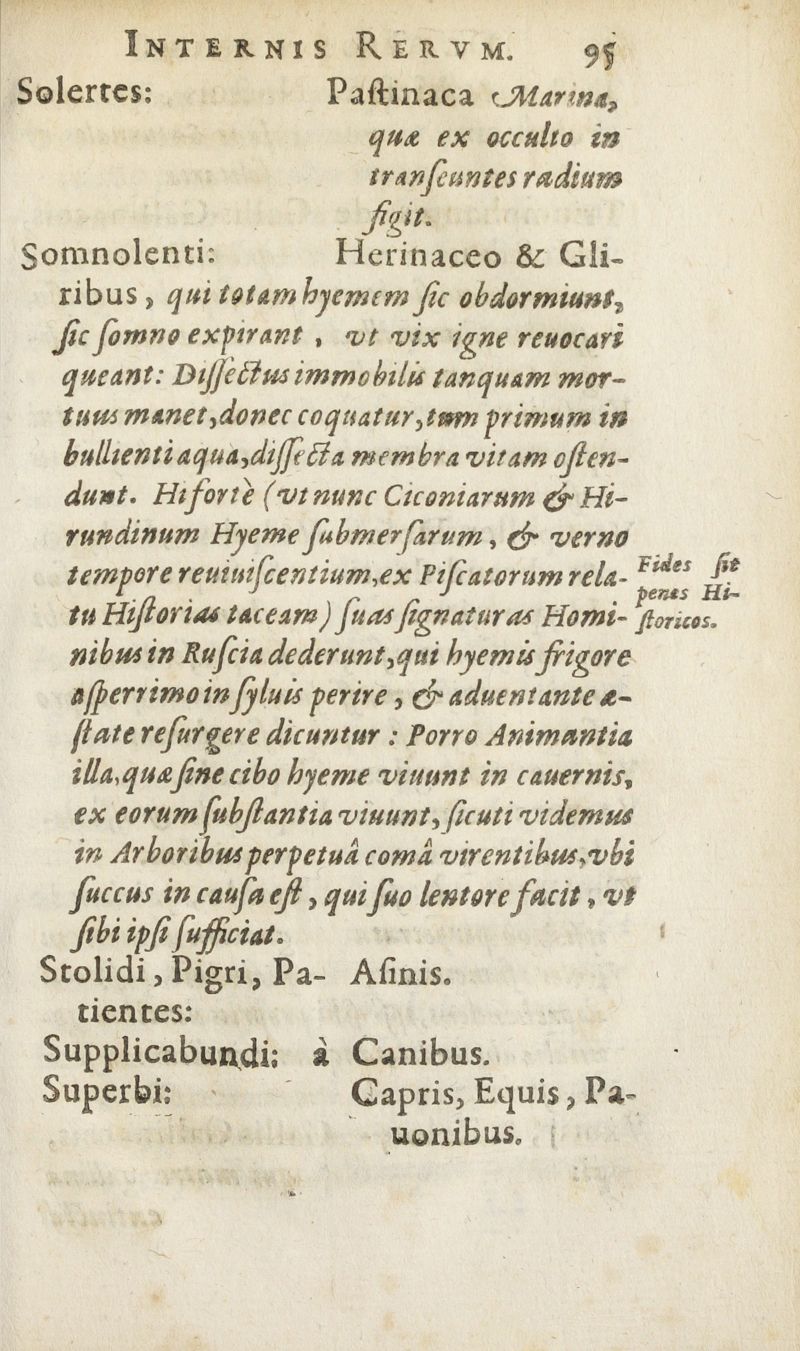 INTERNIS RERVM. 95
Solertes: Paſtinaca Marina,
quæ ex occulto in
tranſeuntes radium
figit.
Somnolenti: Herinaceo & Gli-
ribus, qui totam hyemem ſic obdormiunt,
ſic ſomno expirant, vt vix igne reuocari
queant: Diſſectus immobilis tanquam mor-
tuus manet, donec coquatur, tum primum in
bullienti aqua, diſſecta membra vitam oſten-
dunt. Hi fortè (vt nunc Ciconiarum & Hi-
rundinum Hyeme ſubmerſarum, & verno
tempore reuiuiſcentium, ex Piſcatorum rela-
tu Hiſtorias taceam) ſuas ſignaturas Homi-
nibus in Ruſcia dederunt, qui hyemis frigore
aſperrimo in ſyluis perire, & aduentante æ-
ſtate reſurgere dicuntur: Porro Animantia
illa, quæ ſine cibo hyeme viuunt in cauernis,
ex eorum ſubſtantia viuunt, ſicuti videmus
in Arboribus perpetuâ comâ virentibus, vbi
ſuccus in cauſa eſt, qui ſuo lentore facit, vt
ſibi ipſi ſufficiat.
Fides ſit
penes Hi-
ſtoricos.
Stolidi, Pigri, Pa- Aſinis.
tientes:
Supplicabundi: à Canibus.
Superbi: Capris, Equis, Pa-
uonibus.